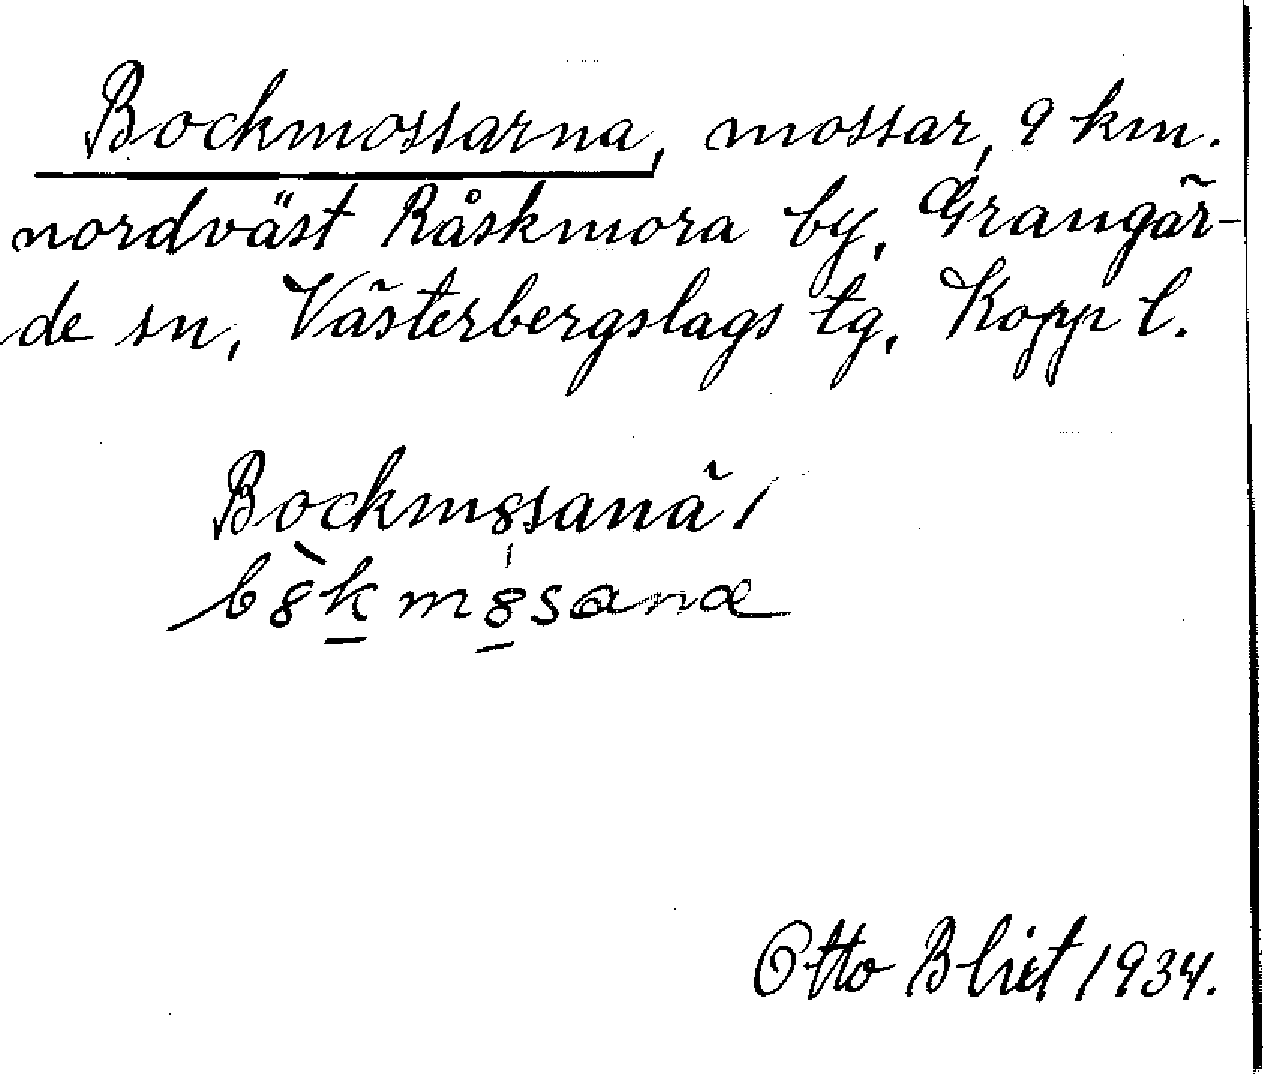 Bockmossarna, mossar, 9 km.
nordväst Råskmora by, Grangär-
de sn, Västerbergslags tg, Kopp l.
Bockmȣsanä /
bȣ̀kmȣsanæ
Otto Blixt 1934.